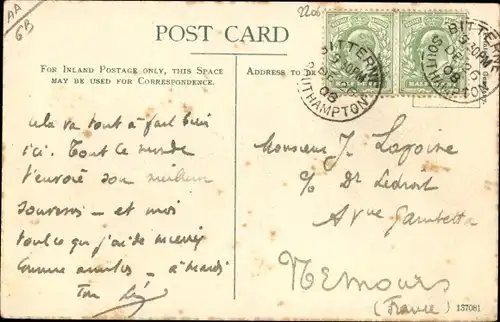 AA
GB
2206
POST CARD
FOR INLAND POSTAGE ONLY, THIS SPACE
MAY BE USED FOR CORRESPONDENCE.
ADDRESS TO BE
BITTERNE
08
SOUTHAMPTON
BITTERNE
08
SOUTHAMPTON
cela va tout à fait bien
ici. Tout ce monde
t'envoie son meilleur
souvenir - et moi
tout ce que j'ai de
comme - à mardi
Ton
Monsieur J. Lafoine
c/o Dr Ledroit
Avue Gambetta
Nemours
(France)
137081